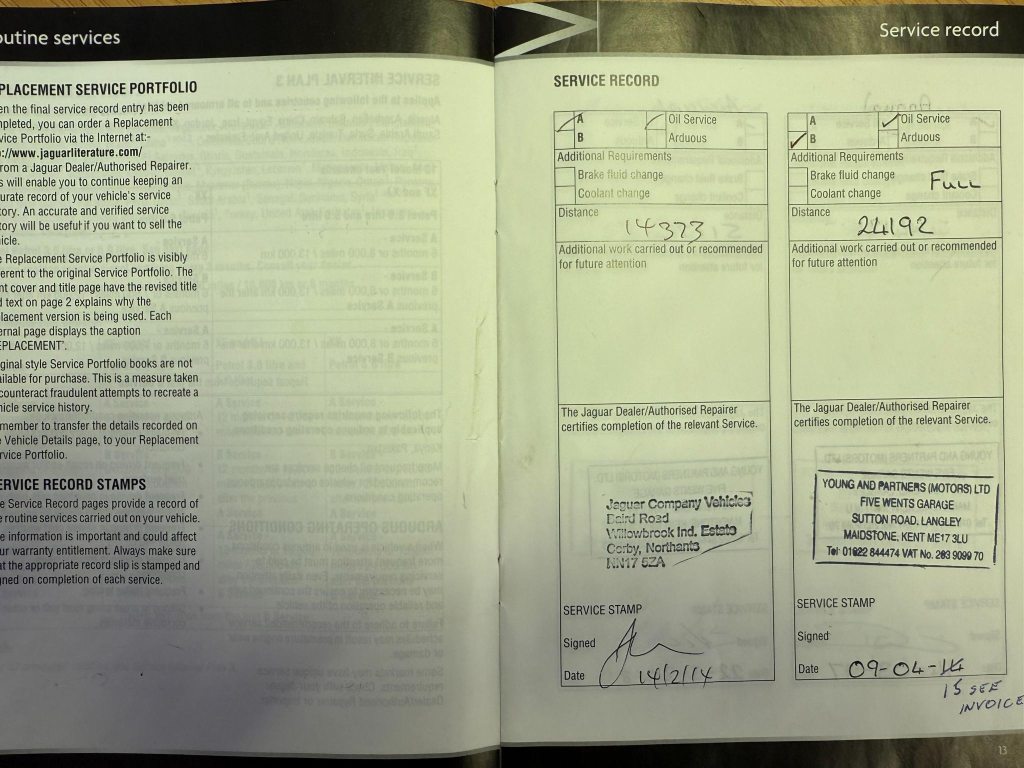 outine services
PLACEMENT SERVICE PORTFOLIO
en the final service record entry has been
mpleted, you can order a Replacement
vice Portfolio via the Internet at:-
://www.jaguarliterature.com/
rom a Jaguar Dealer/Authorised Repairer.
s will enable you to continue keeping an
urate record of your vehicle's service
tory. An accurate and verified service
tory will be useful if you want to sell the
icle.
e Replacement Service Portfolio is visibly
erent to the original Service Portfolio. The
nt cover and title page have the revised title
d text on page 2 explains why the
lacement version is being used. Each
ernal page displays the caption
EPLACEMENT'.
ginal style Service Portfolio books are not
ailable for purchase. This is a measure taken
counteract fraudulent attempts to recreate a
hicle service history.
member to transfer the details recorded on
e Vehicle Details page, to your Replacement
rvice Portfolio.
ERVICE RECORD STAMPS
e Service Record pages provide a record of
e routine services carried out on your vehicle.
e information is important and could affect
ur warranty entitlement. Always make sure
at the appropriate record slip is stamped and
gned on completion of each service.
Service record
SERVICE RECORD
A
Oil Service
B
Arduous
Additional Requirements
Brake fluid change
Coolant change
Distance
14373
Additional work carried out or recommended
for future attention
The Jaguar Dealer/Authorised Repairer
certifies completion of the relevant Service.
Jaguar Company Vehicles
Baird Road
Willowbrook Ind. Estate
Corby, Northants
NN17 5ZA
SERVICE STAMP
Signed
Date 14/2/14
A
Oil Service
B
Arduous
Additional Requirements
Brake fluid change
FULL
Coolant change
Distance
24192
Additional work carried out or recommended
for future attention
The Jaguar Dealer/Authorised Repairer
certifies completion of the relevant Service.
YOUNG AND PARTNERS (MOTORS) LTD
FIVE WENTS GARAGE
SUTTON ROAD, LANGLEY
MAIDSTONE, KENT ME17 3LU
Tel: 01622 844474 VAT No. 203 9099 70
SERVICE STAMP
Signed
Date 09-04-14
15 SEE
INVOICE
13